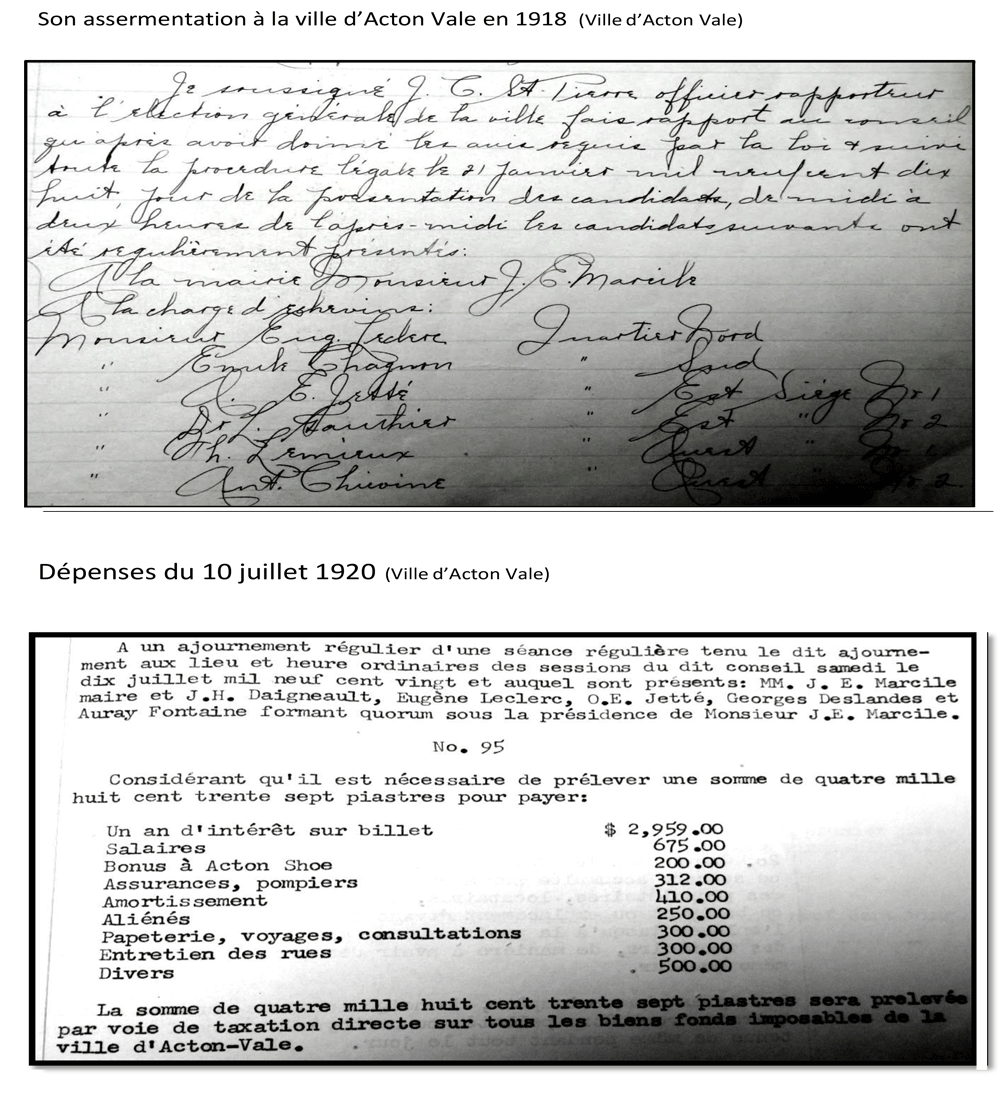 Son assermentation à la ville d’Acton Vale en 1918 (Ville d’Acton Vale)
Je soussigné J. C. St. Pierre officier rapporteur
à l'élection générale de la ville fais rapport au conseil
qu'après avoir donné les avis requis par la loi & suivi
toute la procedure légale le 21 Janvier mil neuf cent dix
huit, jour de la présentation des candidats, de midi à
deux heures de l'après-midi les candidats suivants ont
été regulièrement présentés:
A la mairie Monsieur J. E. Marcile
A la charge d'echevins:
Monsieur Eug. Leclerc Quartier Nord
" Emile Chagnon " Sud
" O. E. Jetté " Est Siége No 1
" Dr L. Gauthier " Est " No 2
" Th. Lemieux " Ouest " No 1
" Ant. Chicoine " Ouest " No 2
Dépenses du 10 juillet 1920 (Ville d’Acton Vale)
A un ajournement régulier d'une séance régulière tenu le dit ajourne-
ment aux lieu et heure ordinaires des sessions du dit conseil samedi le
dix juillet mil neuf cent vingt et auquel sont présents: MM. J. E. Marcile
maire et J.H. Daigneault, Eugène Leclerc, O.E. Jetté, Georges Deslandes et
Auray Fontaine formant quorum sous la présidence de Monsieur J.E. Marcile.
No. 95
Considérant qu'il est nécessaire de prélever une somme de quatre mille
huit cent trente sept piastres pour payer:
Un an d'intérêt sur billet $ 2,959.00
Salaires 675.00
Bonus à Acton Shoe 200.00
Assurances, pompiers 312.00
Amortissement 410.00
Aliénés 250.00
Papeterie, voyages, consultations 300.00
Entretien des rues 300.00
Divers 500.00
La somme de quatre mille huit cent trente sept piastres sera prelevée
par voie de taxation directe sur tous les biens fonds imposables de la
ville d'Acton-Vale.